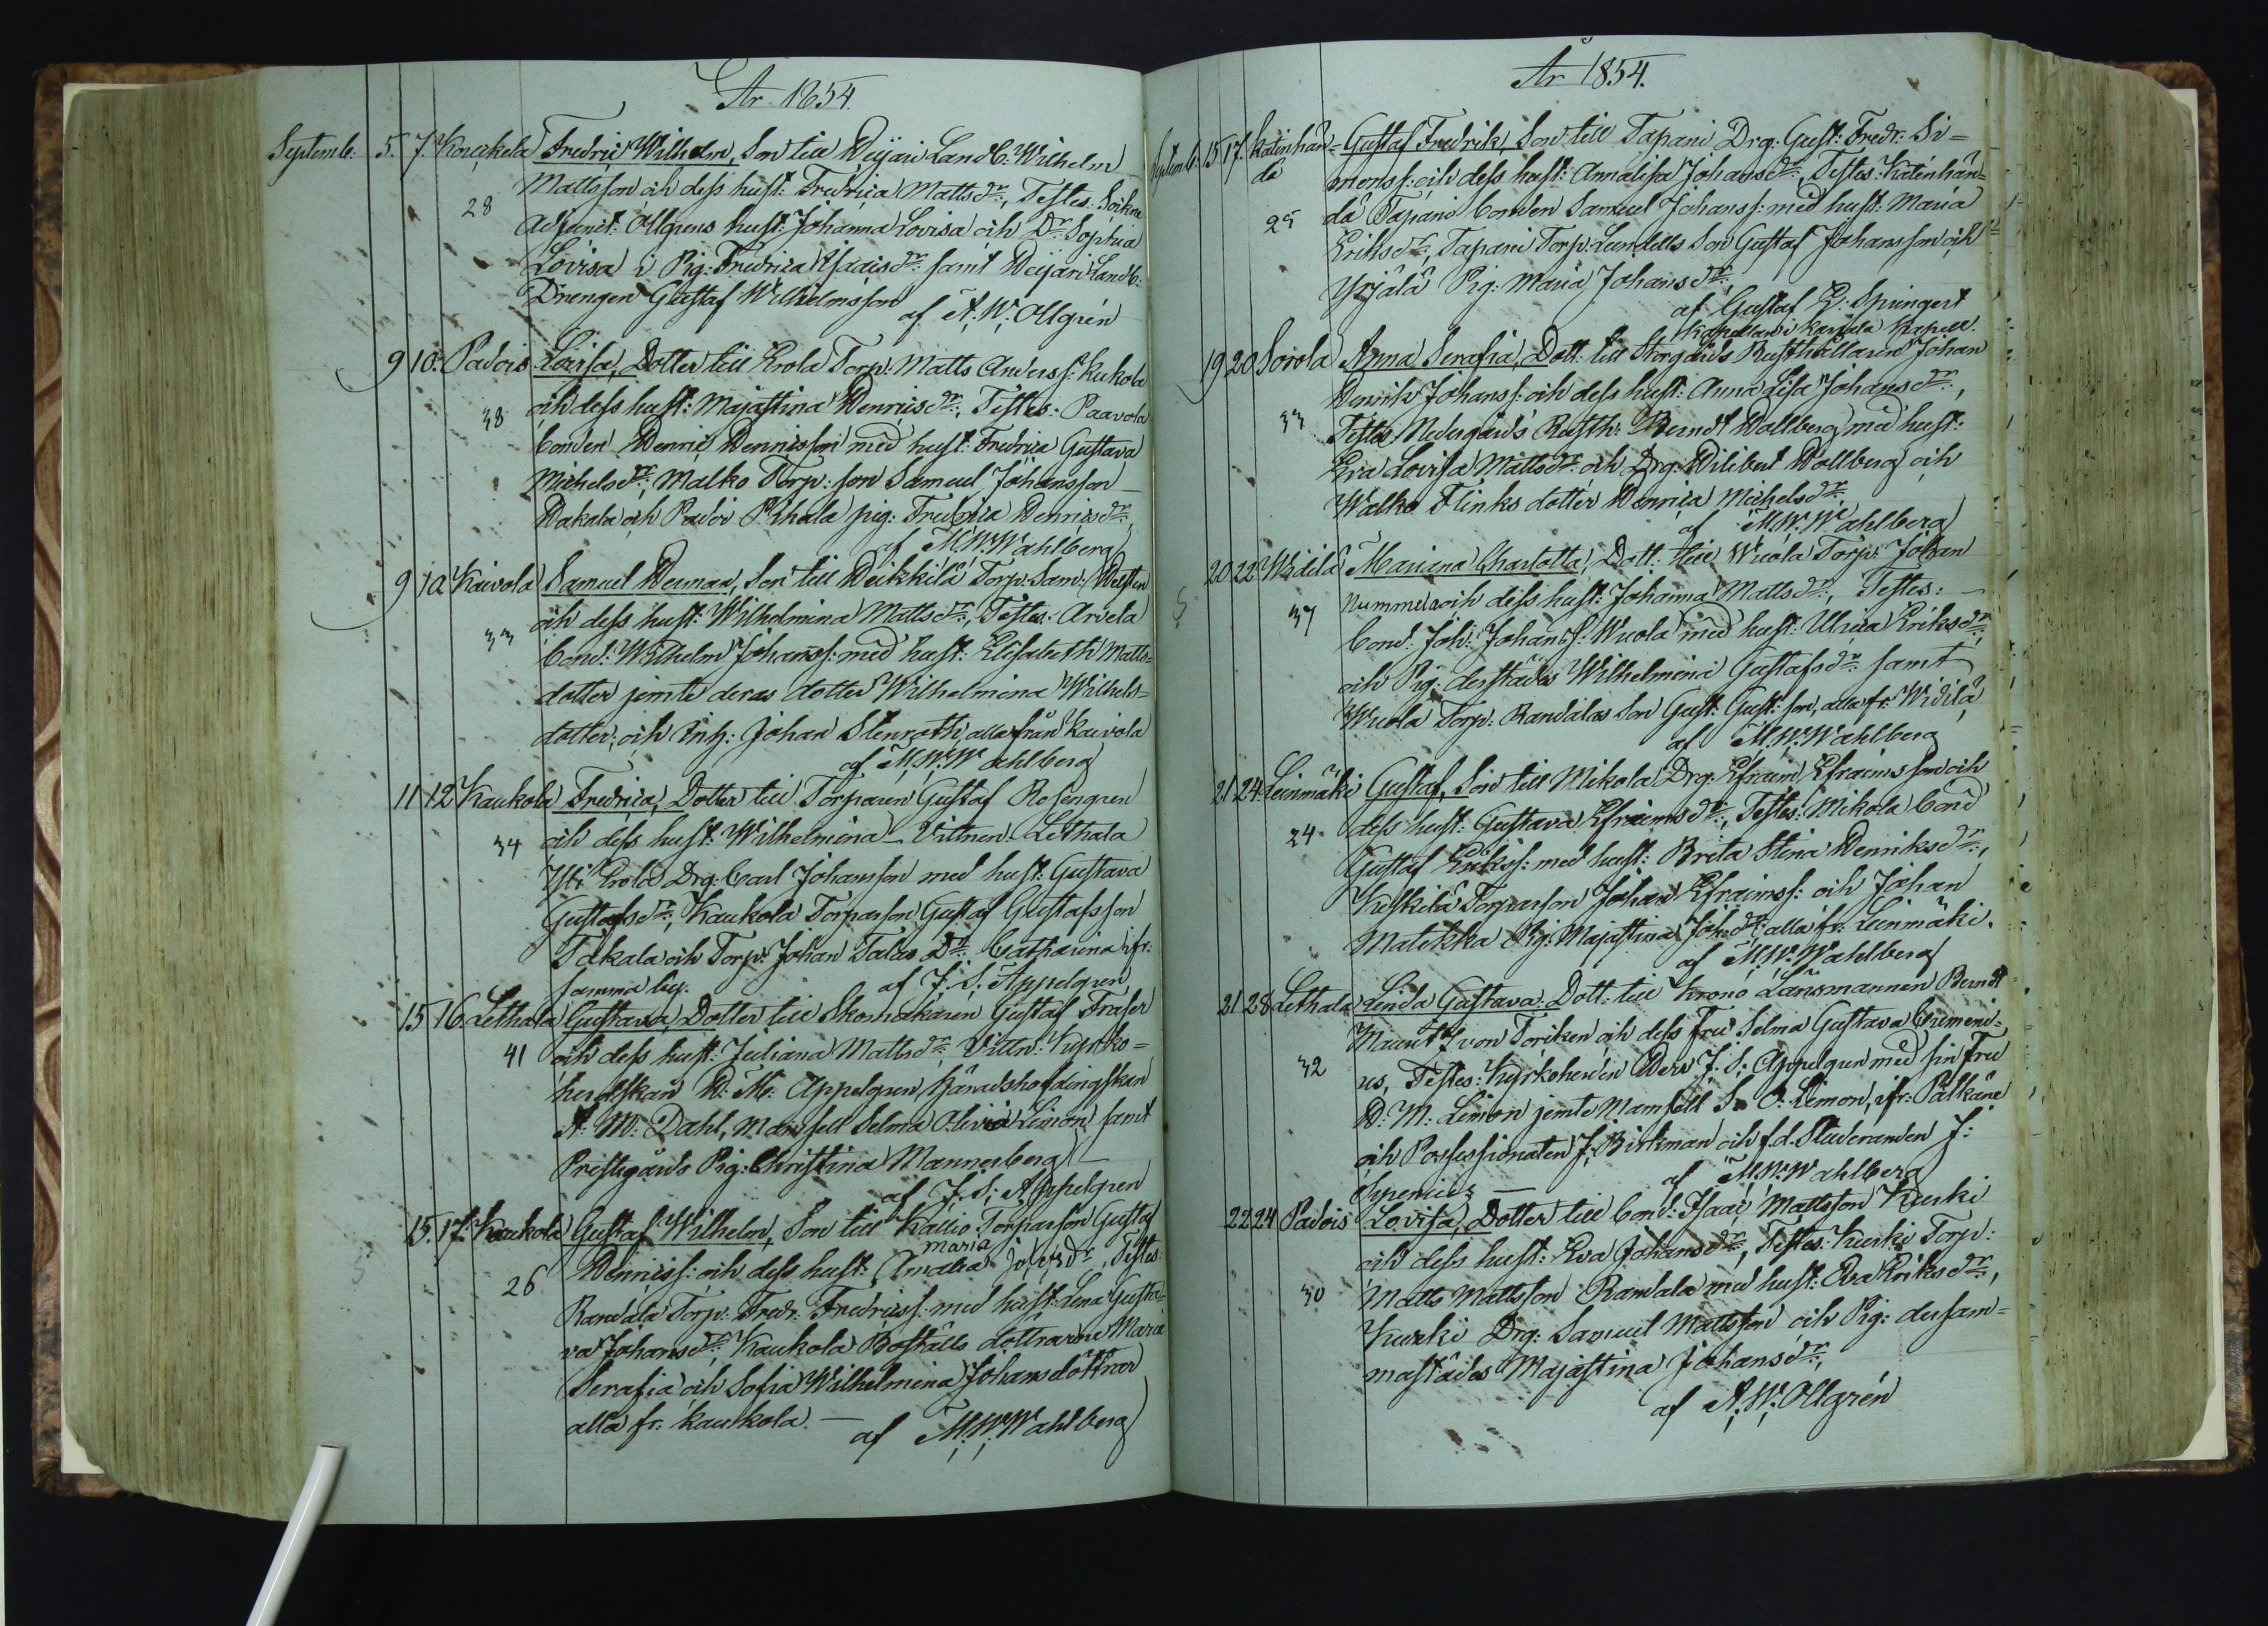 År 1854.
Septemb: 5. 7. Koukela Fredric Wilhelm, Son till Heijari Landb. Wilhelm
Mattsson och dess hust: Fredrica Mattsdr:, Testes: Soikne
28 Adjunct: Ollgrens hust: Johanna Lovisa och Dr Sophia
Lovisa i Pig: Fredrica Isaacsdr: samt Heijari Landb:
Drengen Gustaf Wilhelmsson
af A. W. Ollgrén
9 10. Padois Lovisa, Dotter till Erola Torp: Matts Anderss: Kukola
och dess hust: Majastina Henricsdr:, Testes: Paavola
38 bonden Henric Henricsson med hust: Fredrica Gustava
Michelsdr:, Malko Torp: son Samuel Johansson
Hakala och Padoi Pihala pig: Fredrica Henricsdr:,
af M. W. Wahlberg
9 10 Kaivola Samuel Herman, Son till Heikkilä Torp: Sam: Westen
och dess hust: Wilhelmina Mattsdr:, Testes: Arvela
33 bond: Wilhelm Johanss: med hust: Elisabeth Matts-
dotter jemte deras dotter Wilhelmina Wilhels-
dotter, och Inh: Johan Stenroth, alla från Kaivola
af M. W. Wahlberg
11 12 Kaukola Fredrica, Dotter till Torparen Gustaf Rosengren
34 och dess hust: Wilhelmina Vittnen Lethala
Yli Erola Drg: Carl Johansson med hust: Gustava
Gustafsdr:, Kaukola Torparson Gustaf Gustafsson
Takala och Torp: Johan Talas Dr: Catharina ifr:
samma by. af J. S. Appelgren
15 16. Lethala Gustava, Dotter till Skomakaren Gustaf Fraser
41 och dess hust: Juliana Mattsdr: Vittn: Kyrko-
herdskan H. M. Appelgren, Häradshöfdingskan
A. M. Dahl, Mamsell Selma Olivia Limon samt
Prestgårds Pig: Christina Mannerberg
af J. S. Appelgren
15. 17. Kaukola Gustaf Wilhelm, Son till Kallio Torparson Gustaf
Henricss: och dess hust: Amalia Maria Johsdr, Testes:
26 Randala Torp: Fredr: Fredricss: med hust: Lena Gusta-
va Johansdr: Kaukola Boställs döttrarne Maria
Serafia och Sofia Wilhelmina Johansdöttrar
alla fr. Kaukola. af M. W. Wahlberg
År 1854.
Septemb: 15 17. Katinhän- Gustaf Fredrik, Son till Tapani Drg: Gust: Fredr: Si-
dä monss: och dess hust: Annalisa Johansdr:, Testes: Katinhän-
25 dä Tapani bonden Samuel Johanss: med hust: Maria
Eriksdr:, Tapani Torp: Lundells Son Gustaf Johansson och
Yrjälä Pig: Maria Johansdr:,
af Gustaf E. Springert
Kapellan i Karjala Kapell.
19 20 Sorola Anna Serafia, Dott: till Storgårds Rusthållaren Johan
Henrik Johanss: och dess hust: Anna Lisa Johansdr:,
33 Testes Nedergårds Rusth: Berndt Hallberg med hust:
Eva Lovisa Mattsdr: och Drg: Wilibert Hallberg och
Walko Flinks dotter Henrica Michelsdr:
af M. W. Wahlberg
20 22 Widilä Mariana Charlotta, Dott: till Wuola Torp: Johan
37 Nummela och dess hust: Johanna Mattsdr:, Testes:
bond: Joh: Johanss: Wuola med hust: Ulrica Eriksdr:,
och Pig: derstädes Wilhelmina Gustafsdr: samt
Wuola Torp: Randalas Son Gust: Gust: son, alla fr. Widilä
af M. W. Wahlberg
21 24 Leinmäki Gustaf, Son till Mikola Drg: Efraim Efraimsson och
24 dess hust: Gustava Efraimsdr:, Testes: Mikola bond
Gustaf Erikss: med hust: Brita Stina Henriksdr:,
Keskilä Torparson Johan Efraimss: och Johan
Matikka Pig: Majastina Joh:dr: alla fr. Leinmäki.
af M. W. Wahlberg
21 28 Lethala Linda Gustava Dott: till Krono Länsmannen Berndt
Maurits von Töriken och dess Fru Selma Gustava Gumeni-
32 us, Testes: Kyrkoherden Herr J. S. Appelgren med sin Fru
H. M. Limon jemte Mamsell S. O. Limon, ifr: Pälkäne
och Possessionaten J. Birkman och f.d. Studeranden J.
Sirenius af M. W. Wahlberg
22 24 Padois Lovisa, Dotter till bond: Isaac Mattsson Kurki
och dess hust: Eva Johansdr:, Testes: Kurki Torp:
30 Matts Mattsson Randala med hust: Eva Eriksdr:,
Kurki Drg: Samuel Mattsson och Pig: dersam-
mastädes Majastina Johansdr:,
af A. W. Ollgrén